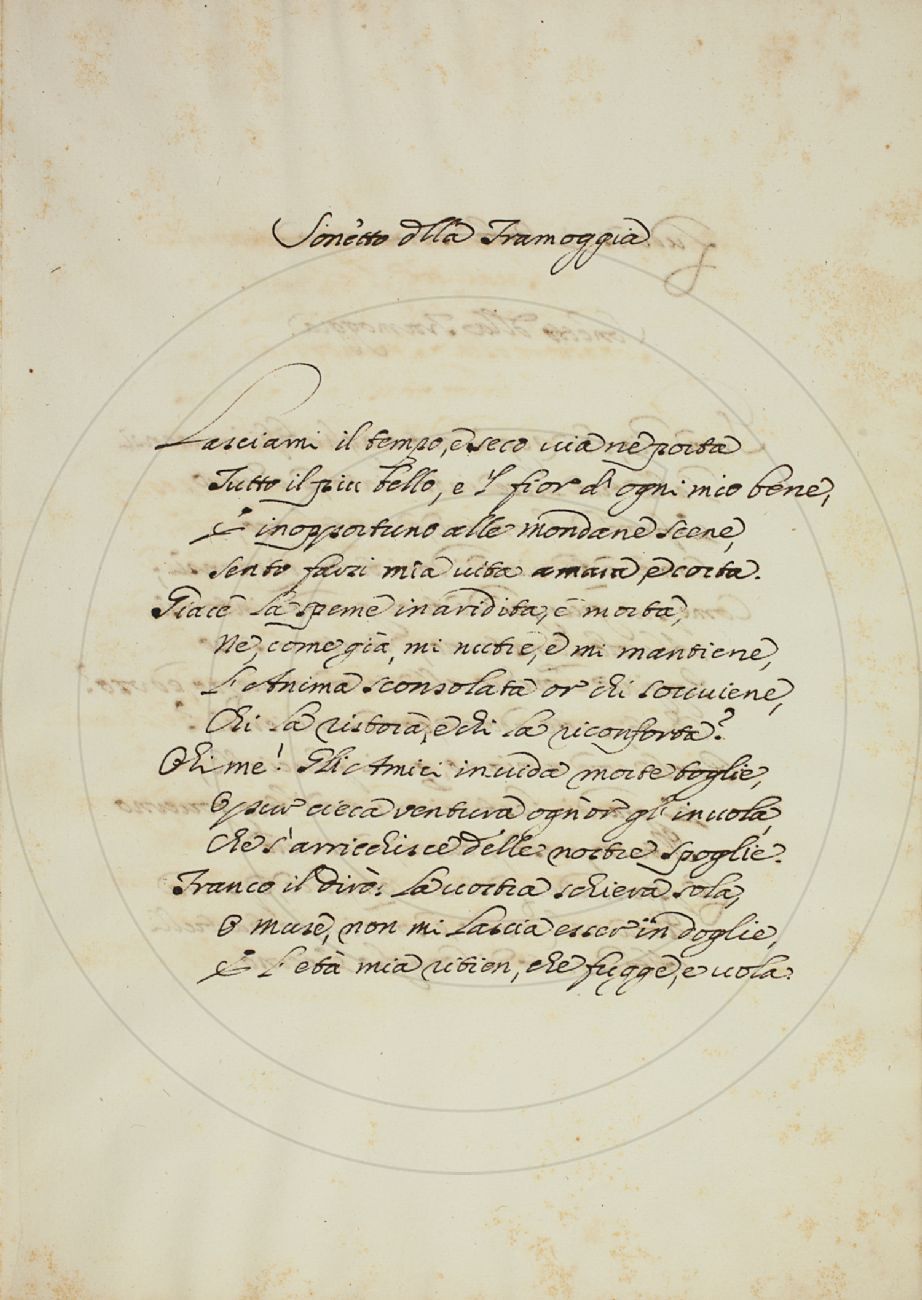 Sonetto dlla Tramoggia
Lasciami il tempo, e seco via ne porta
Tutto il più bello, e 'l fior d' ogni mio bene,
E inopportuno alle mondane scene,
Sento farsi mia vita amara, e corta.
Giace la speme inaridita, e morta,
Ne, come già, mi nutre, e mi mantiene,
L'Anima sconsolata or chi sovviene,
Chi la ristora, e chi la riconforta?
Ohime! Gli Amici invida morte toglie,
O pur cieca ventura ogn'or gl' invola,
Che s'arricchisce delle nostre spoglie.
Franco il dirò: La vostra schiera sola,
O muse, non mi lascia esser in doglie,
E l' età mia ritien, che fugge, e vola.